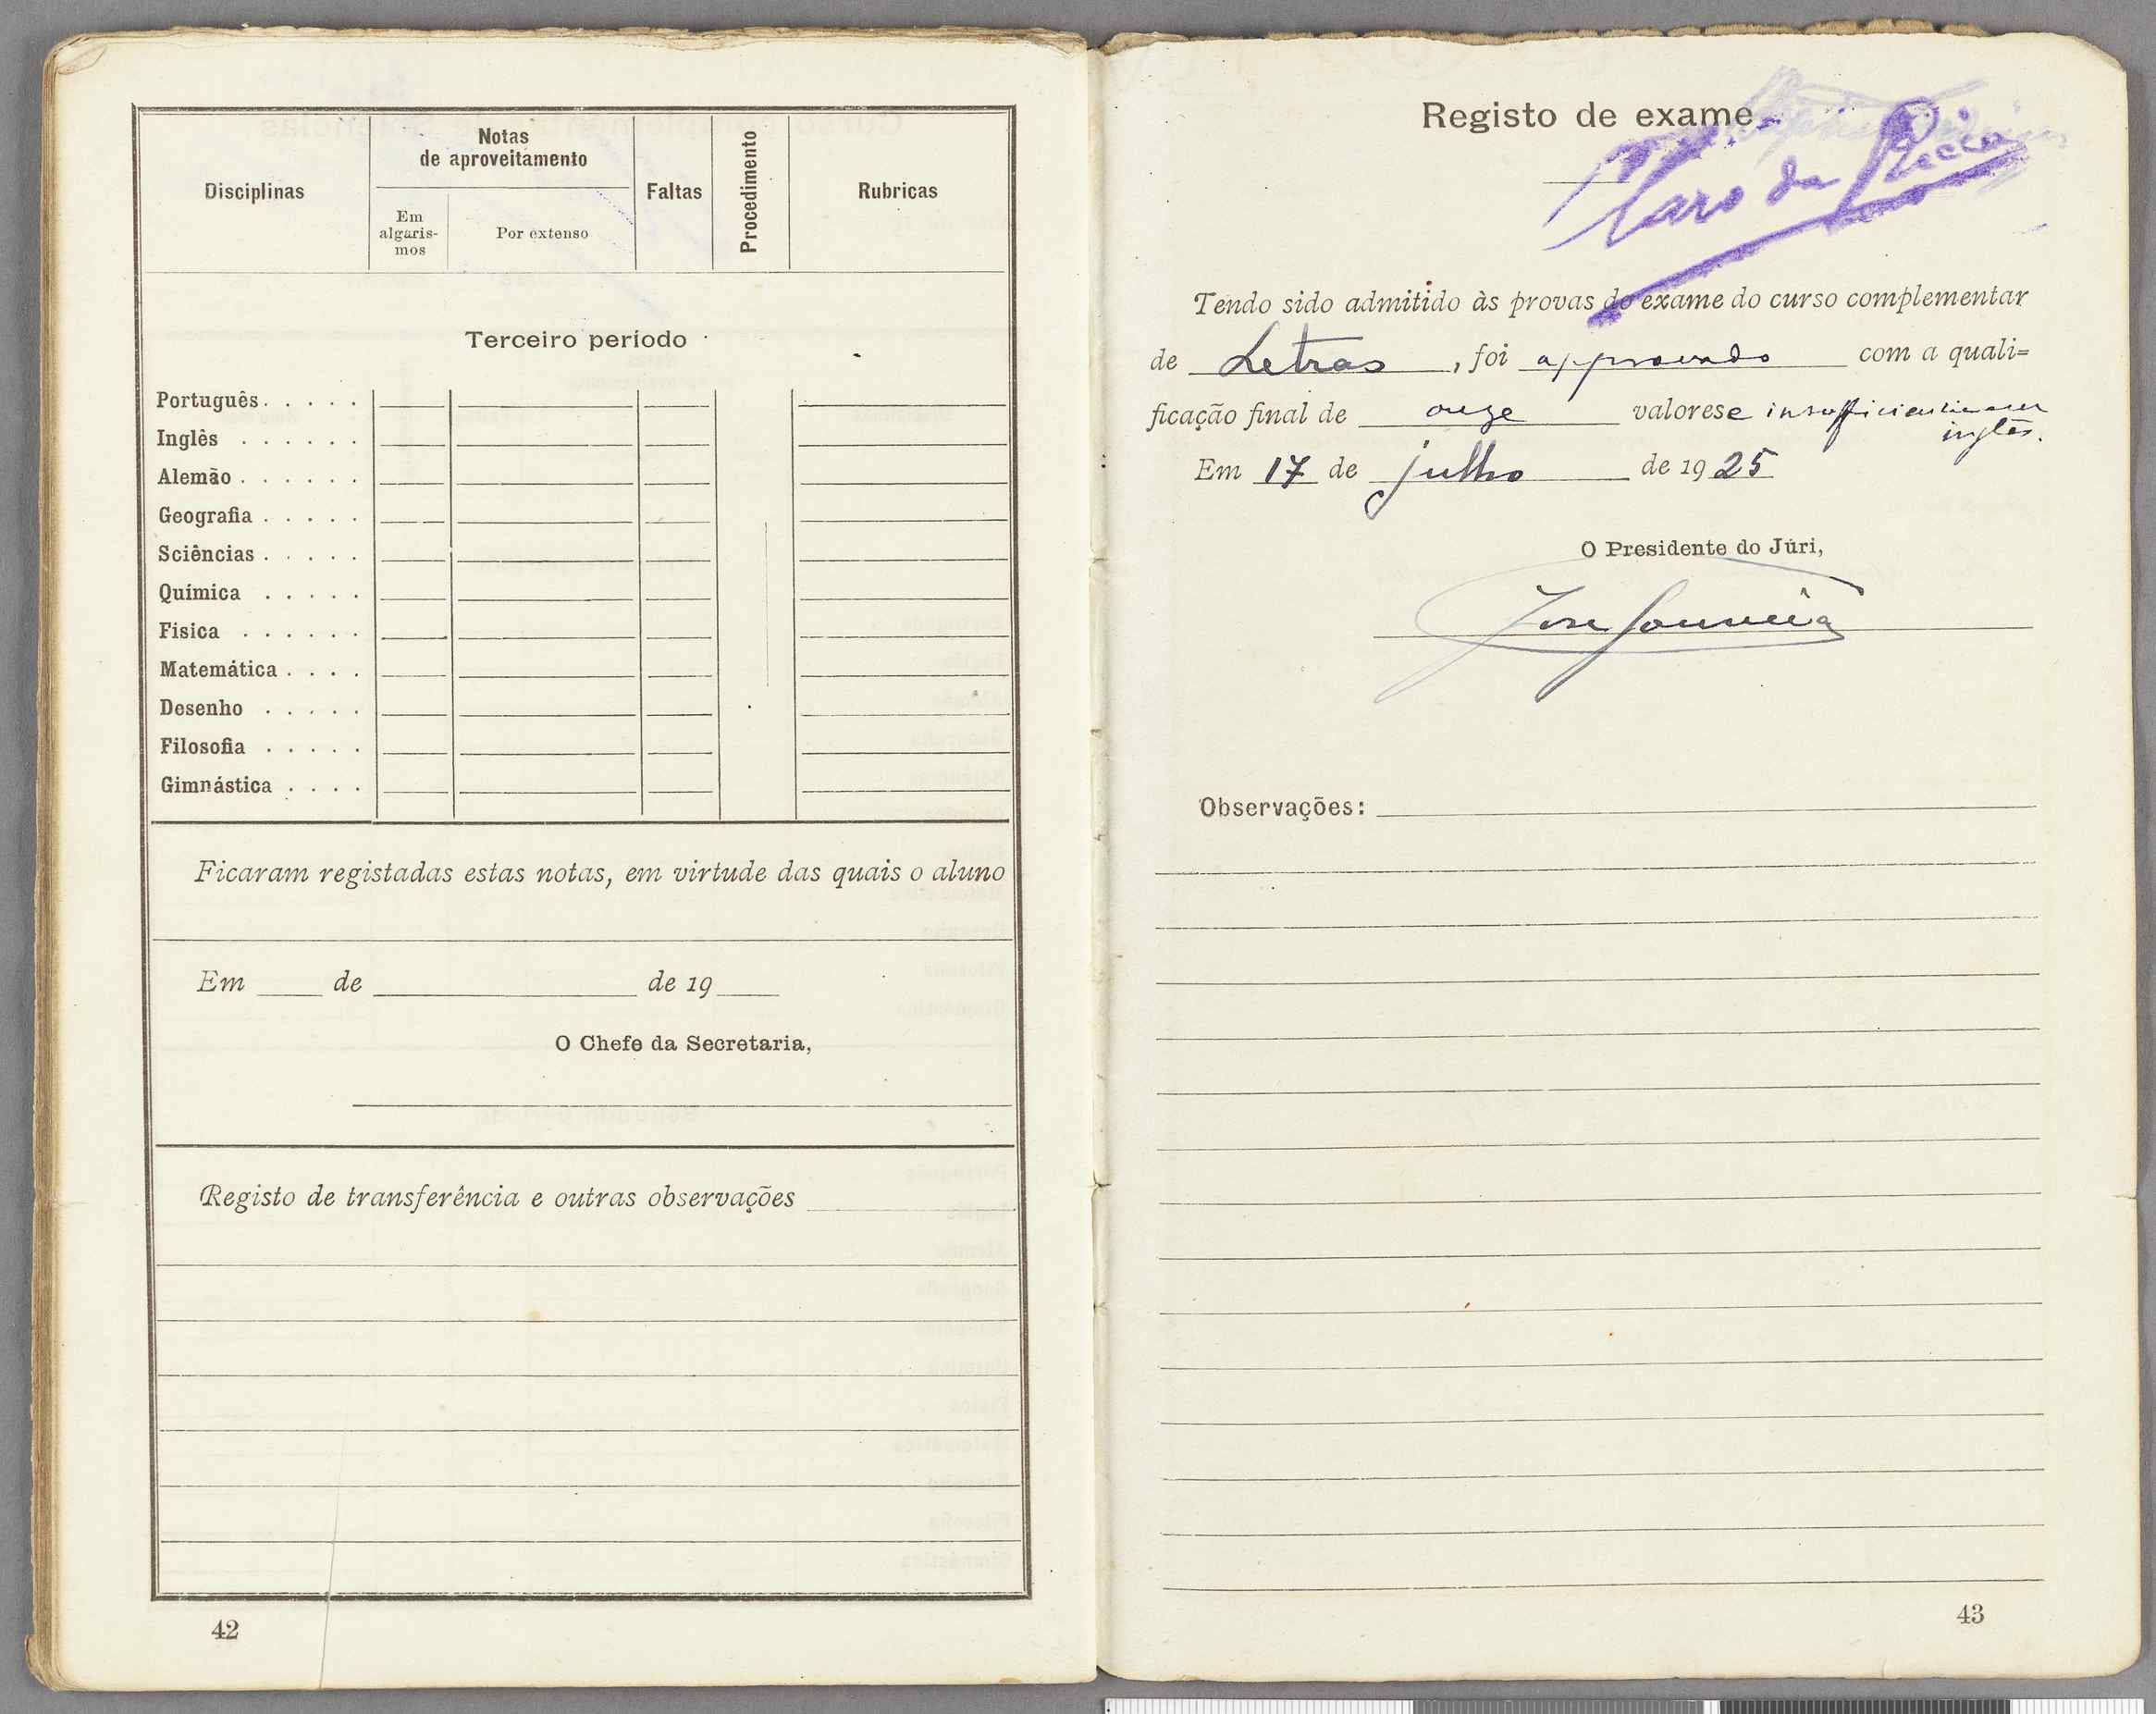 Disciplinas
Notas
de aproveitamento
Em
algaris-
mos
Por extenso
Faltas
Procedimento
Rubricas
Terceiro período
Português . . . . .
Inglês . . . . . .
Alemão . . . . . .
Geografia . . . . .
Sciências . . . . .
Química . . . . .
Fisica . . . . . .
Matemática . . . .
Desenho . . . . .
Filosofia . . . . .
Gimnástica . . . .
Ficaram registadas estas notas, em virtude das quais o aluno
Em de de 19
O Chefe da Secretaria,
Registo de transferência e outras observações
42
Registo de exame
Claro da
Tendo sido admitido às provas do exame do curso complementar
de Letras, foi approvado com a quali=
ficação final de onze valores e insufficiencia em
inglês.
Em 17 de julho de 1925
O Presidente do Júri,
José
Observações:
43